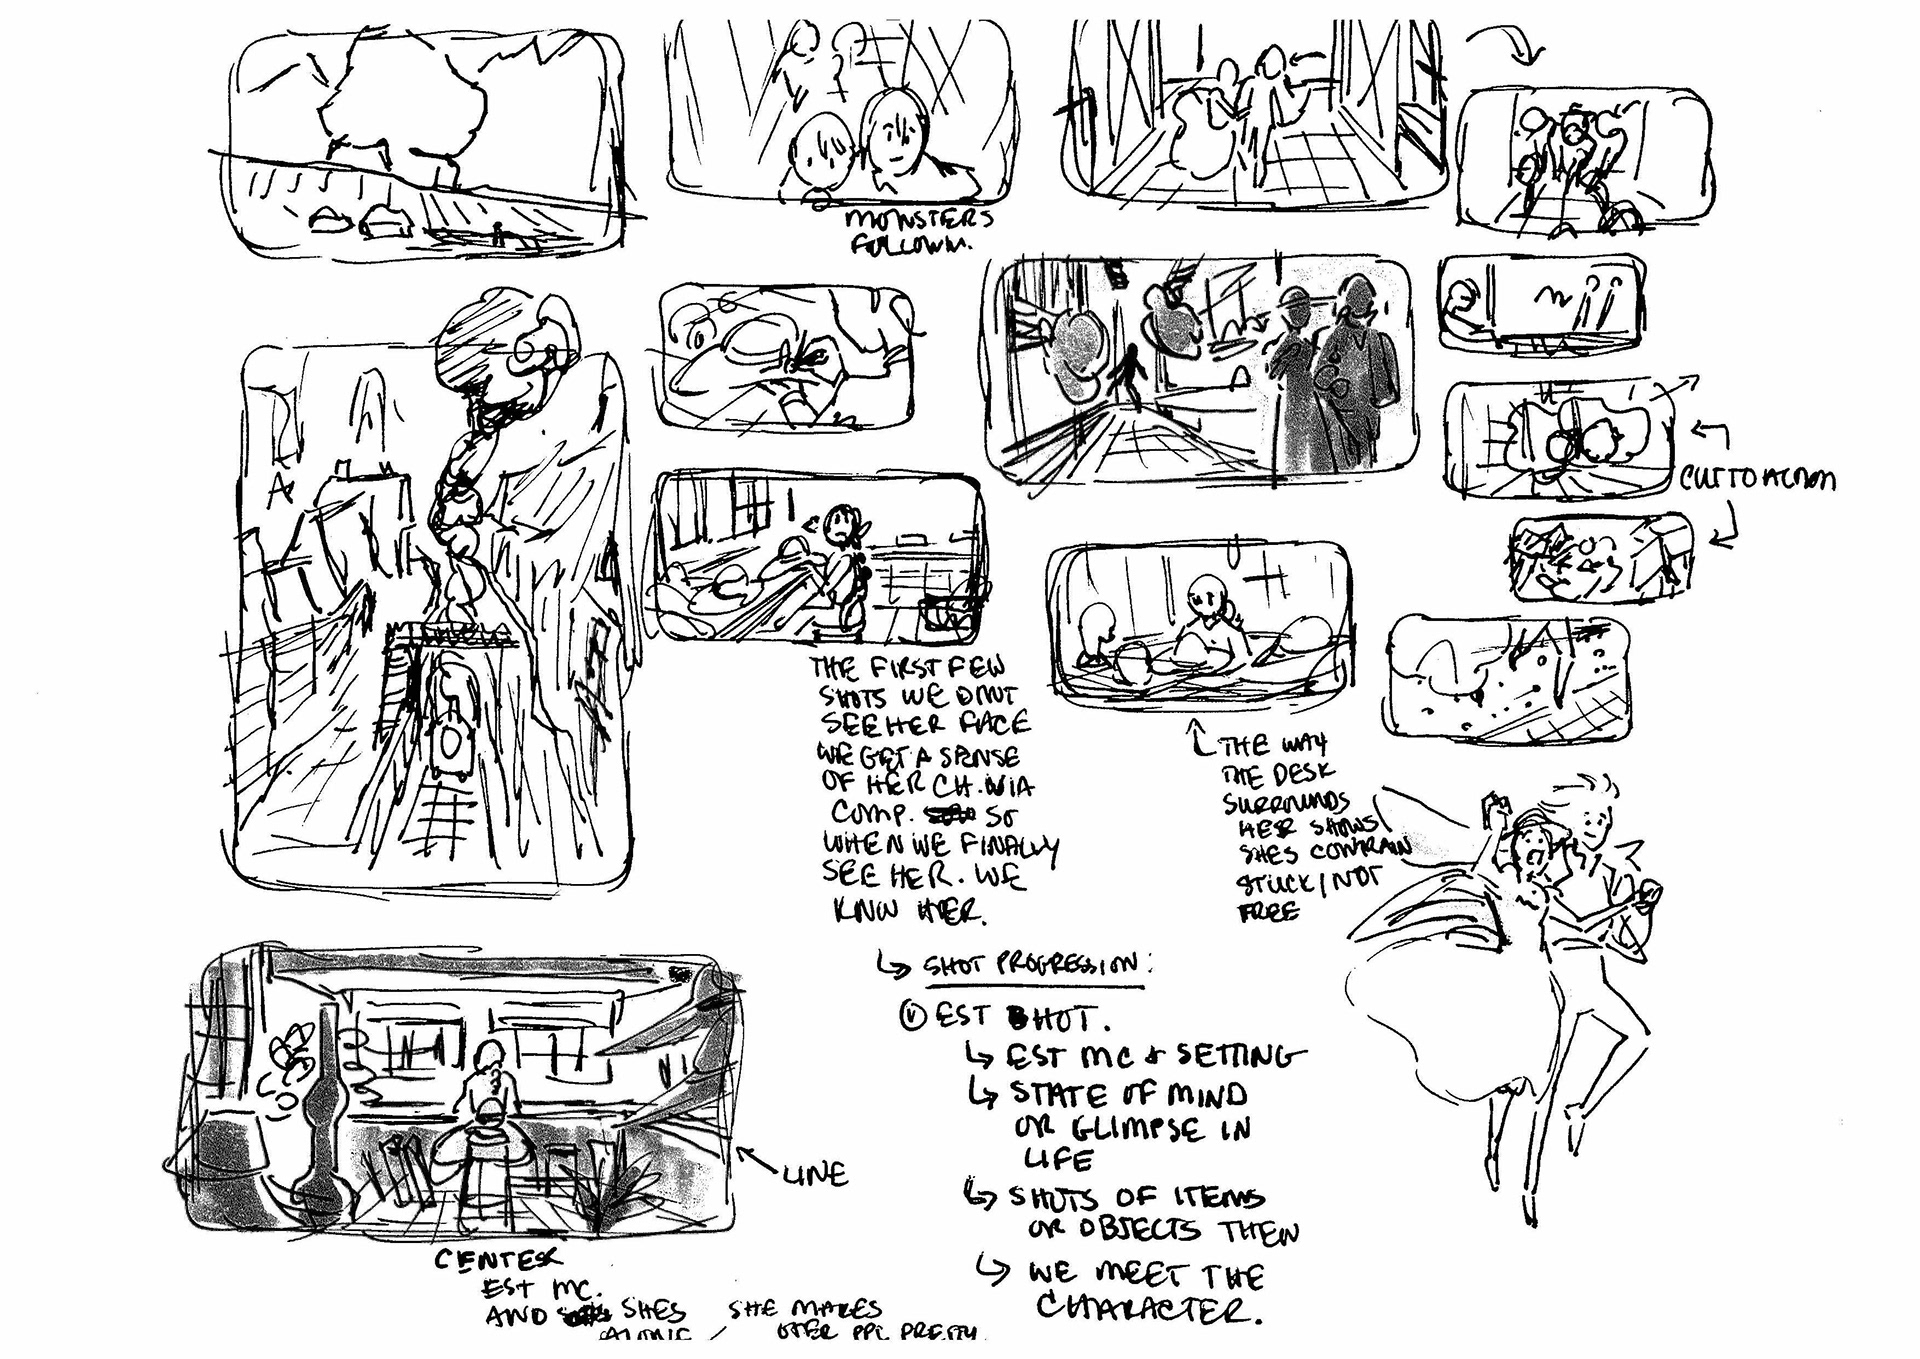 MONSTERS
FOLLOWIN.
CUT TO ACTION
THE FIRST FEW
SHOTS WE DONT
SEE HER FACE
WE GET A SENSE
OF HER CH. VIA
COMP. SO
WHEN WE FINALLY
SEE HER. WE
KNW HER.
THE WAY
THE DESK
SURROUNDS
HER SHOWS
SHES CONTRAIN
STUCK/NOT
FREE
SHOT PROGRESSION:
EST SHOT.
EST MC & SETTING
STATE OF MIND
OR GLIMPSE IN
LIFE
SHOTS OF ITEMS
OR OBJECTS THEN
WE MEET THE
CHARACTER.
LINE
CENTER
EST MC.
AND SHES
ALONE /
SHE MAKES
OTER PPL PRETTY.